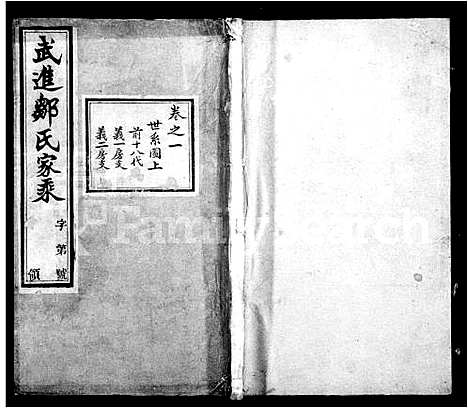 武進鄒氏家乘
字第號
領
卷之一
世系圖上
前十八代
義一房支
義二房支
FamilySearch